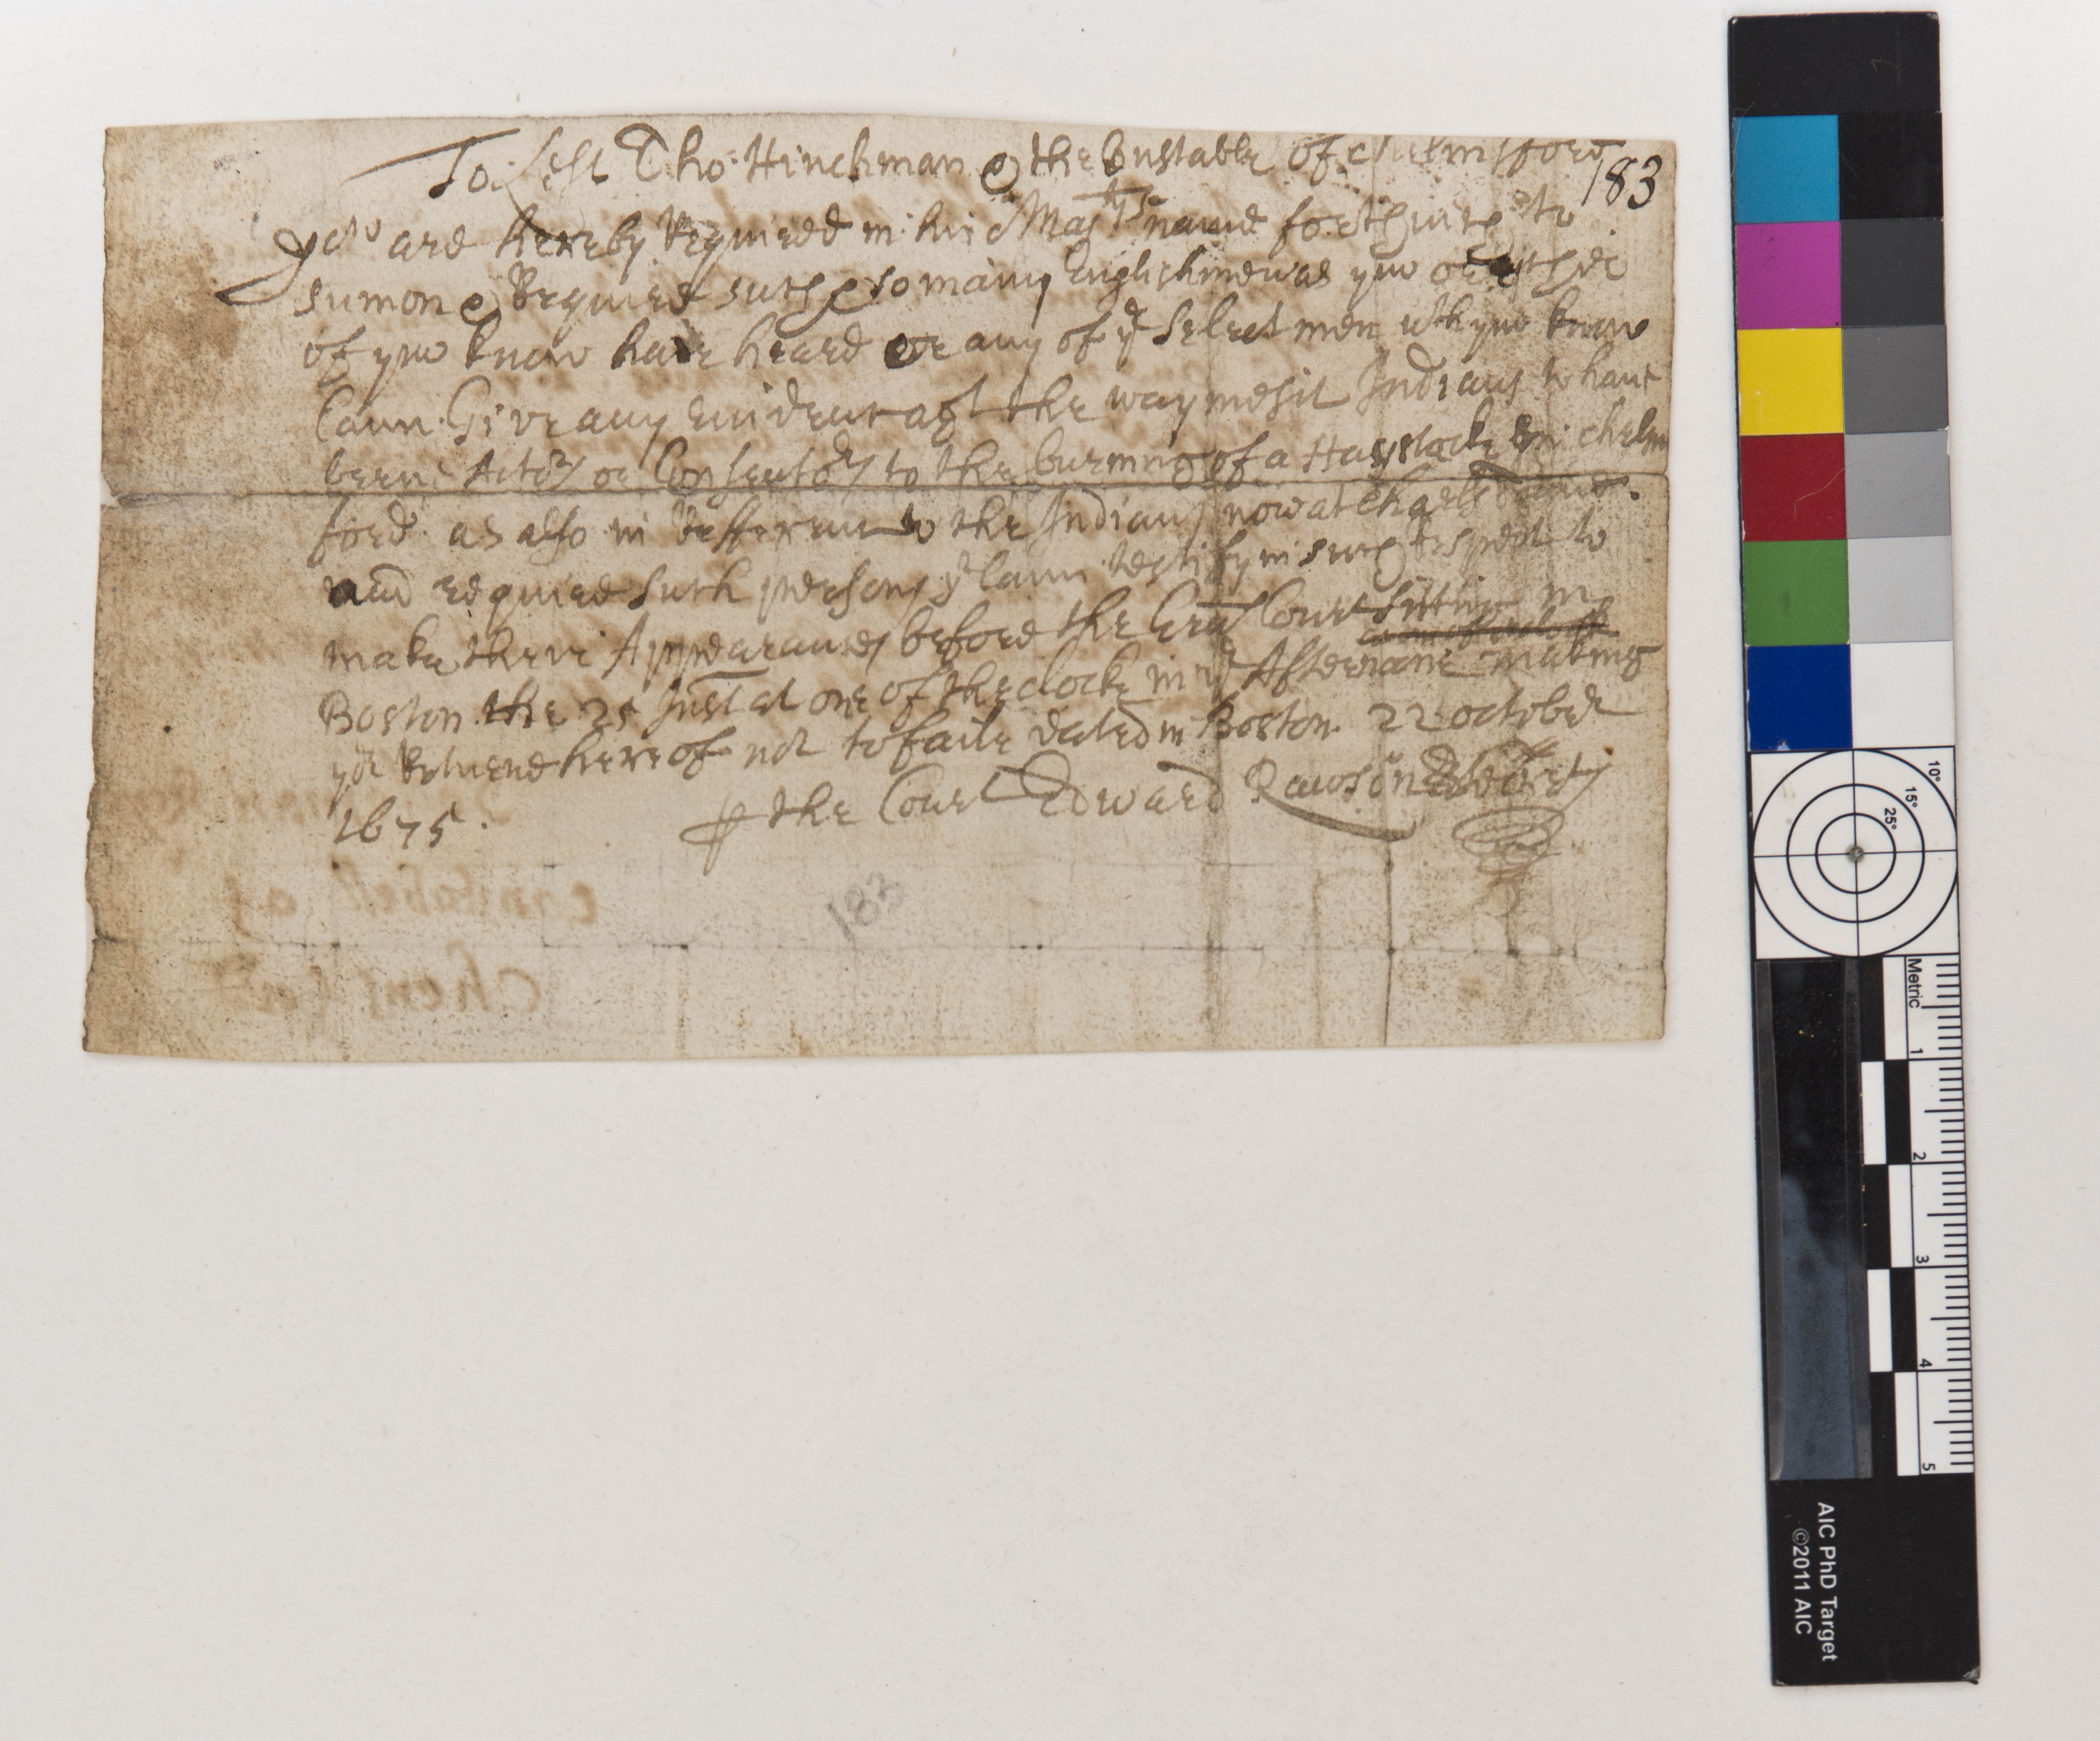 To Left Tho: Hinchman & the Constable of chelmsford
183
yow are hereby Required in his Majtys name forthwith to
sumon & Require such & so many Englishmen as yow or either
of yow know have heard or any of ye select men wch yow know
Cann Give any evidenc agt the waymesit Indians to haue
beene Actors or Consentors to the burning of a Haystacke in chelms
ford as also in Refference to the Indians now at charls Towne.
and require such persons yt Cann testify in such respect to
make their Appearances before the Genll Court sitting in
Boston the 25 Inst at one of the clocke in ye Afternoone making
yor Returne hereof not to faile dated in Boston 22 october
1675. p the Court Edward Rawson Secrety
183